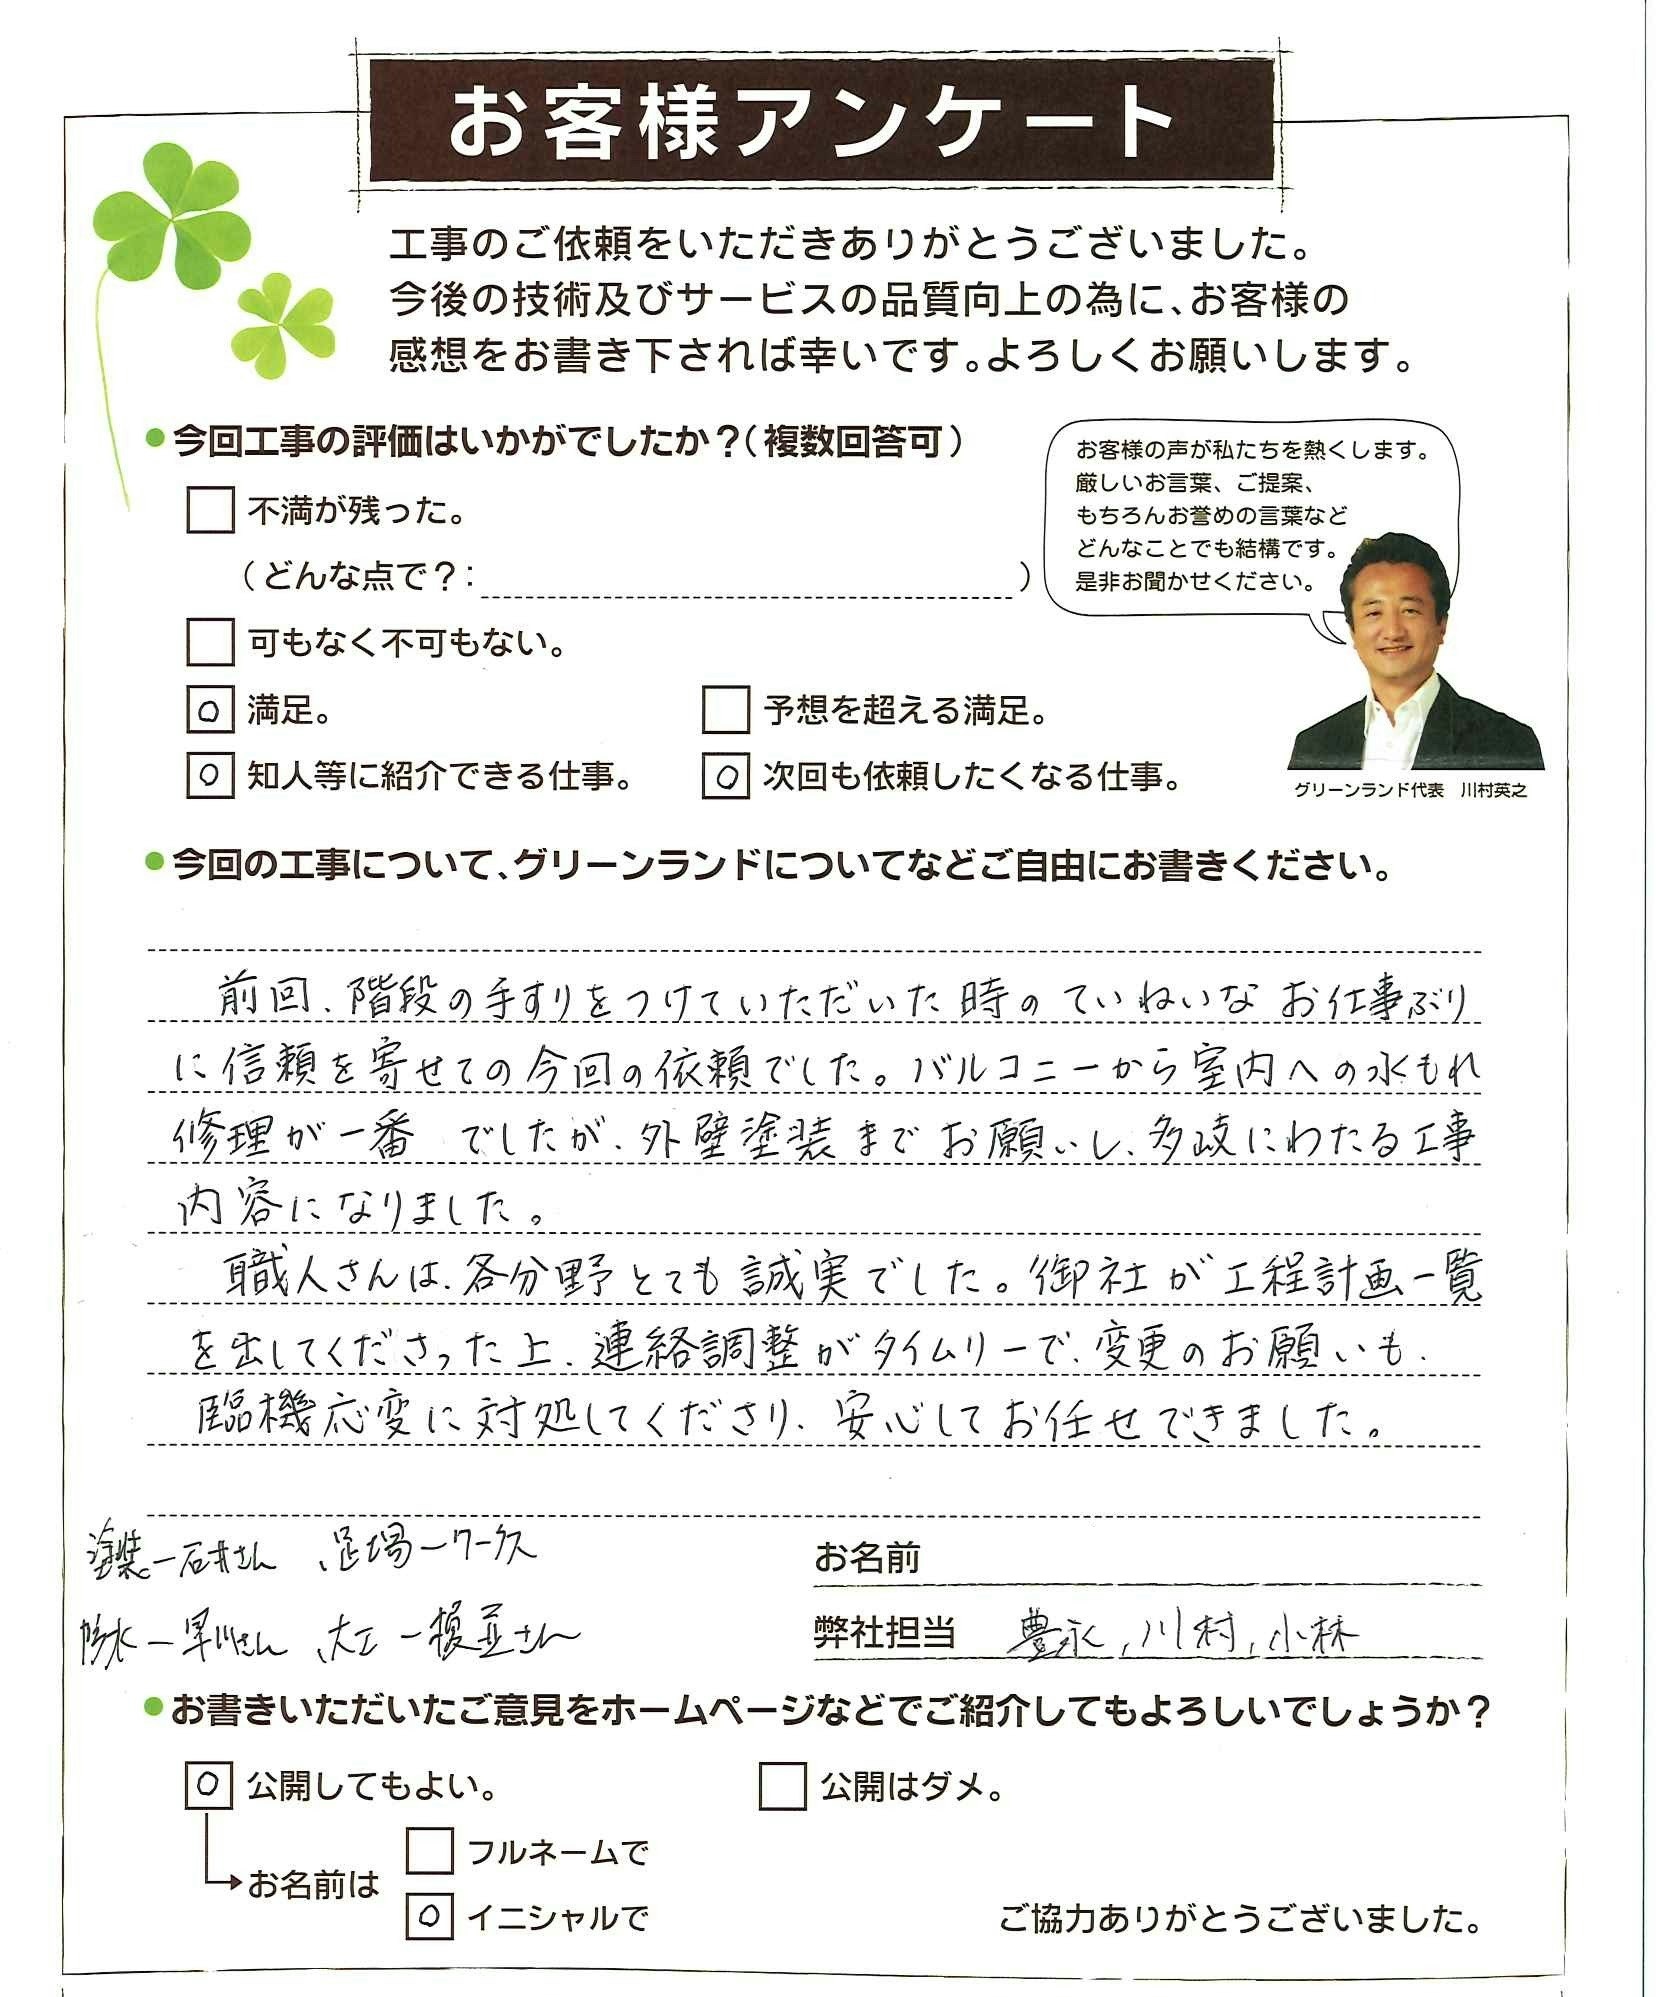 お客様アンケート
工事のご依頼をいただきありがとうございました。
今後の技術及びサービスの品質向上の為に、お客様の
感想をお書き下されば幸いです。よろしくお願いします。
●今回工事の評価はいかがでしたか？(複数回答可)
お客様の声が私たちを熱くします。
厳しいお言葉、ご提案、
もちろんお誉めの言葉など
どんなことでも結構です。
是非お聞かせください。
不満が残った。
(どんな点で？: )
可もなく不可もない。
○ 満足。
予想を超える満足。
○ 知人等に紹介できる仕事。
○ 次回も依頼したくなる仕事。
グリーンランド代表 川村英之
●今回の工事について、グリーンランドについてなどご自由にお書きください。
前回、階段の手すりをつけていただいた時のていねいなお仕事ぶり
に信頼を寄せての今回の依頼でした。バルコニーから室内への水もれ
修理が一番 でしたが、外壁塗装までお願いし、多岐にわたる工事
内容になりました。
職人さんは、各分野とても誠実でした。御社が工程計画一覧
を出してくださった上、連絡調整がタイムリーで、変更のお願いも、
臨機応変に対処してくださり、安心してお任せできました。
塗装ー石井さん 、足場ーワークス
防水ー早川さん 、大工ー榎並さん
お名前
弊社担当 豊永,川村,小林
●お書きいただいたご意見をホームページなどでご紹介してもよろしいでしょうか？
○ 公開してもよい。
公開はダメ。
お名前は
フルネームで
○ イニシャルで
ご協力ありがとうございました。